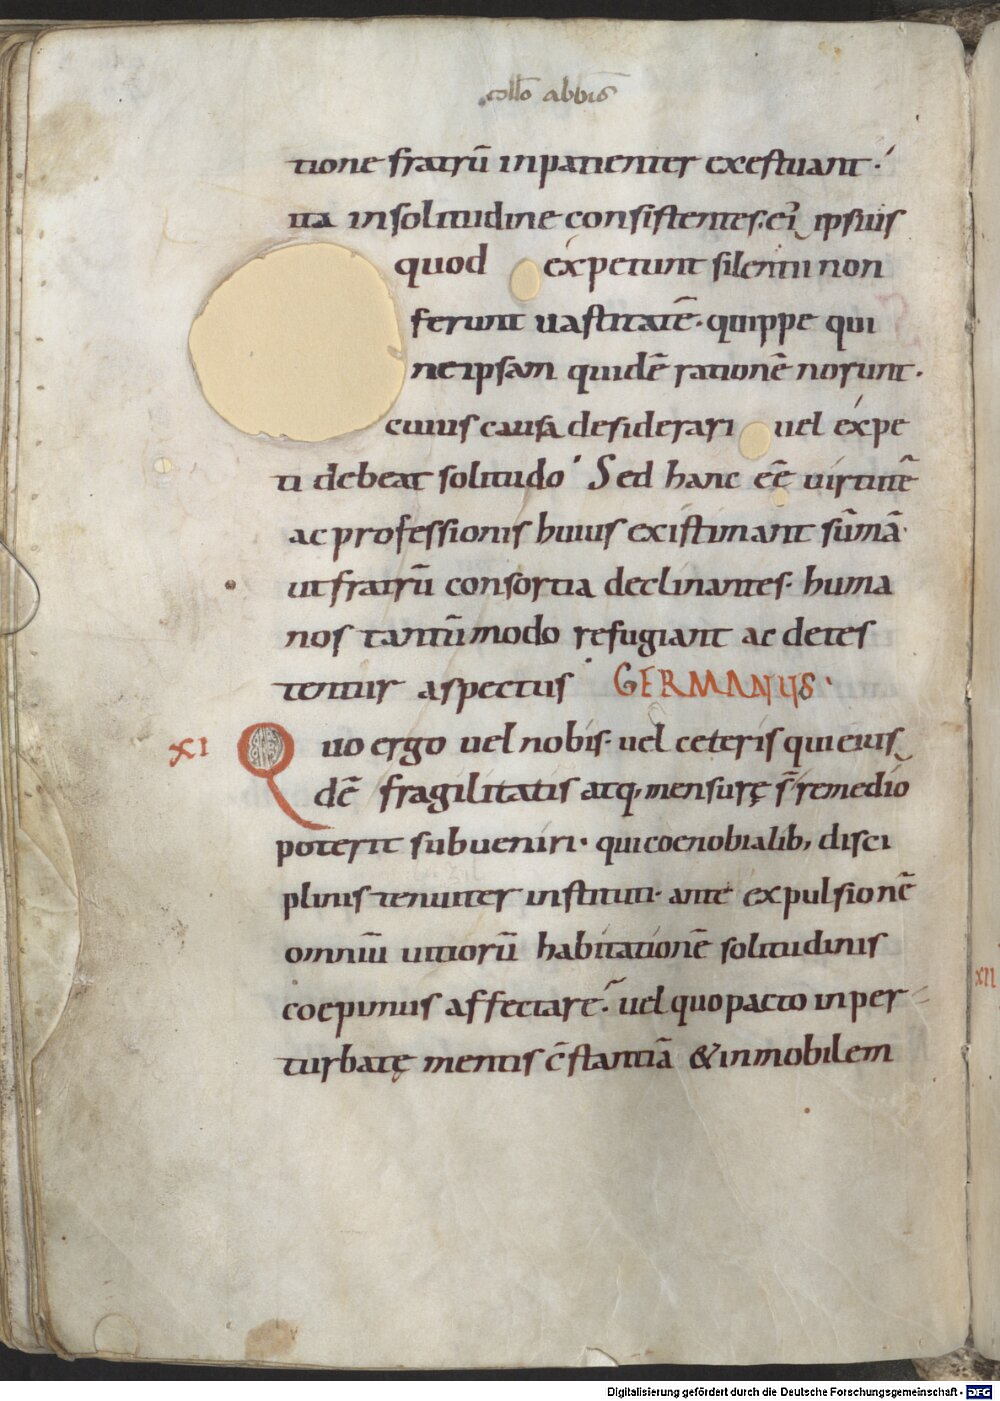 collō abbīs
tione fratrū inpatienter exestuant·
ita insolitudine consistentes. ei᷒ ipsius
quod expetunt silentii non
ferunt uastitatē· quippe qui
neipsam quidē rationē norunt·
cuius causa desiderari uel expe
ti debeat solitudo· Sed hanc eē uirtutē
ac professionis huius existimant sūmā·
ut fratrū consortia declinantes· huma
nos tantūmodo refugiant ac detes
tentur aspectus· GERMANUS·
XI Quo ergo uel nobis· uel ceteris qui eius
dē fragilitatis atq; mensurę s̄ remedio
poterit subueniri· qui coenobialib; disci
plinis tenuiter instituti· ante expulsionē
omniū uitiorū habitationē solitudinis
coepimus affectare· uel quo pacto inper
turbatę mentis c̄stantiā & inmobilem
XII
Digitalisierung gefördert durch die Deutsche Forschungsgemeinschaft - DFG